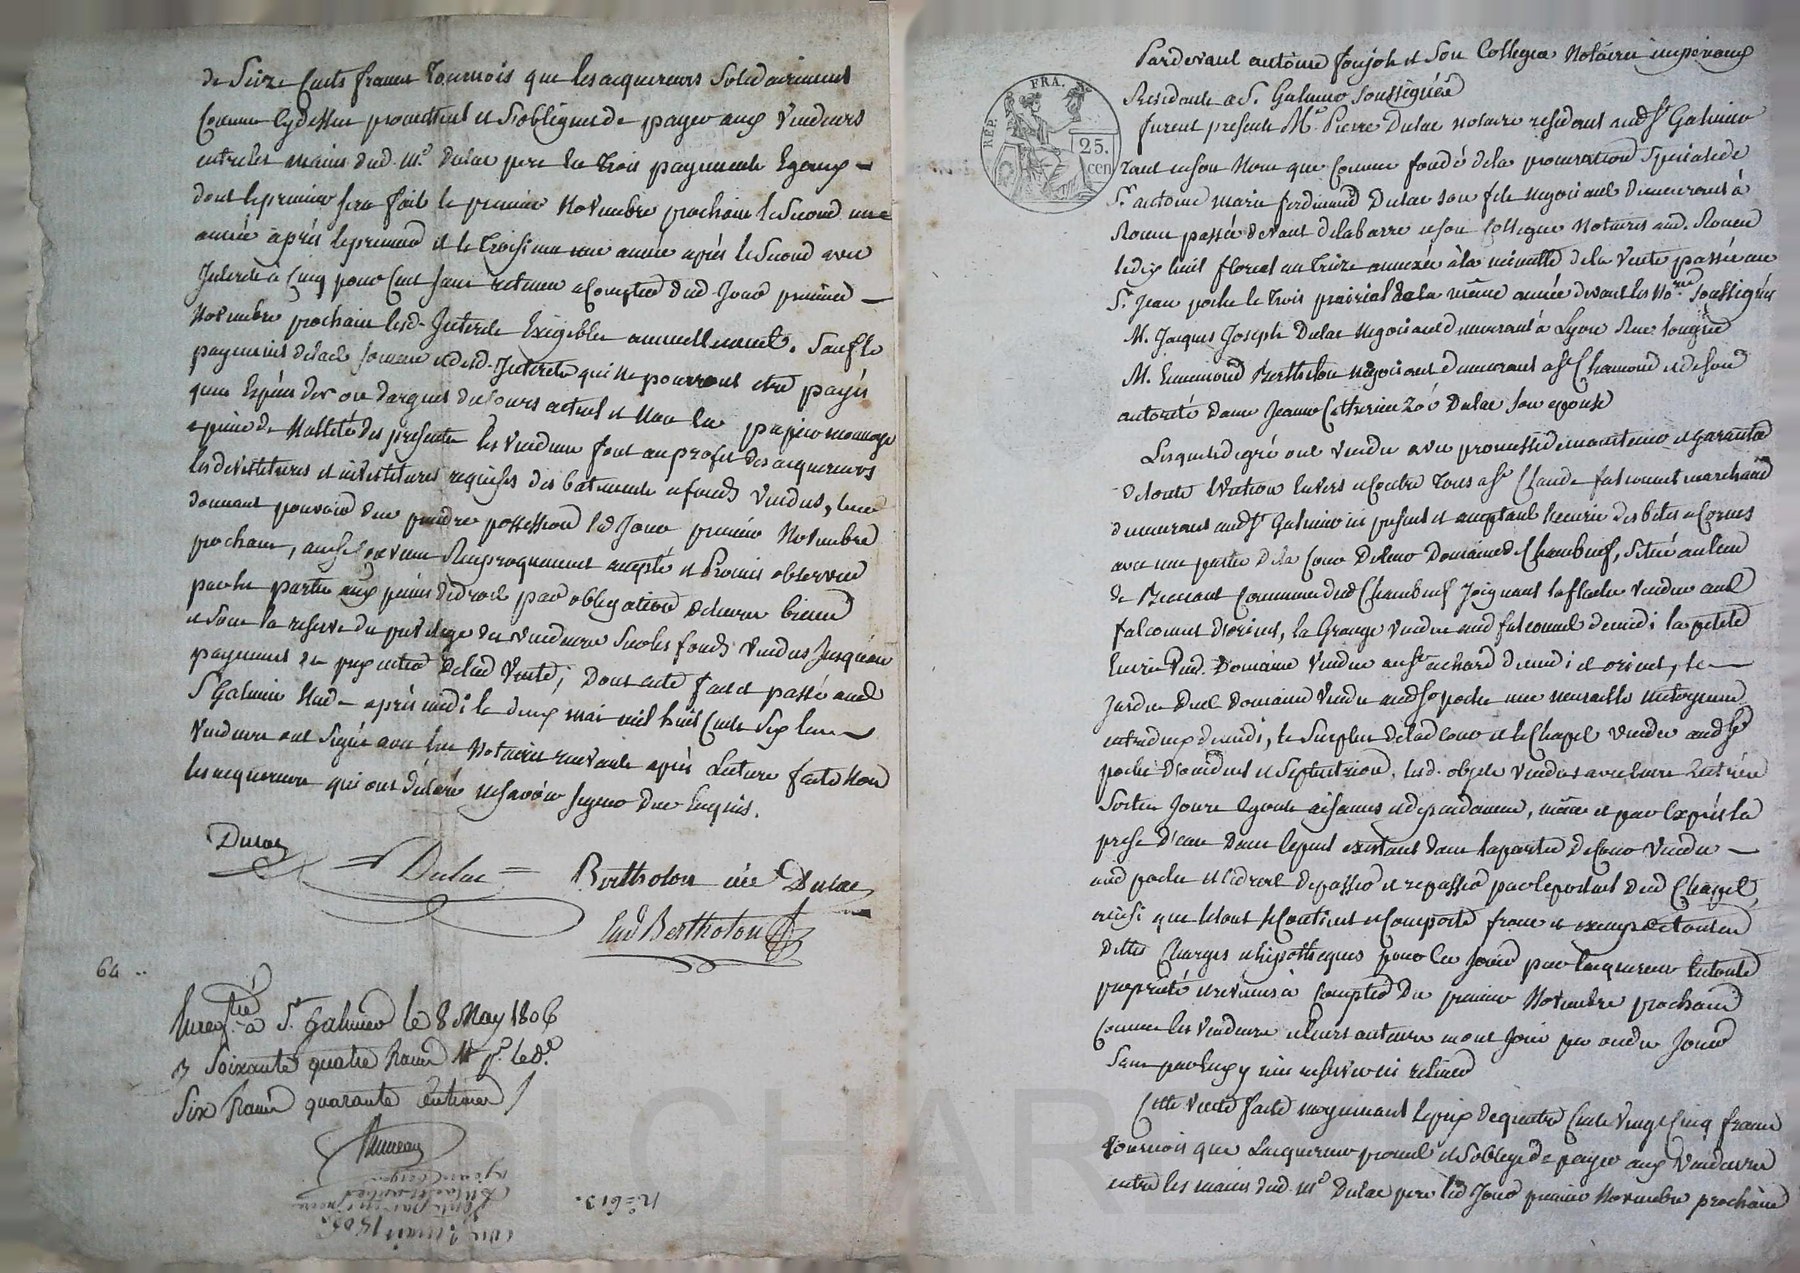 de Seize Cents francs Tournois que les acquereurs Solidairement
Comme Cydessus promettent et S'obligent de payer aux Vendeurs
entre les mains dud. Mr. Dulac pere En Trois payements Egaux
dont le premier sera fait le premier Novembre prochain le Second une
année après le premier et le Troisieme une année après le Second avec
Interets a Cinq pour Cent sans retenue a Compter dud. Jour premier
Novembre prochain lesd. Interets Exigibles annuellement. Sauf le
payement de lad. somme et desd. Interets qui ne pourront etre payés
qu'en Espèces d'or ou d'argent du Cours actuel et Non en papier monnoye
a peine de Nullité des presentes les Vendeurs font au profit des acquereurs
les devestitures et investitures requises des batiments et fonds Vendus, leur
donnant pouvoir d'en prendre possession led. Jour premier Novembre
prochain, ainsi Convenu Reciproquement accepté et Promis observer
par les parties aux peines de droit par obligation de leurs biens
et sous la reserve du privilege des vendeurs sur les fonds Vendus Jusqu'au
payement du prix entier de lad. Vente; Dont acte fait et passé aud.
St. Galmier Etude après midi le deux mai mil huit Cents Six les
Vendeurs ont Signé avec les Notaires recevants après Lecture faite Non
les acquereurs qui ont déclaré ne savoir signer de ce Enquis.
Dulac
Dulac
Bertholon née Dulac
Bertholon
64
Enreg.tré à St. Galmier le 8 May 1806
Soixante quatre francs
Six francs quarante Centimes
N=613.
Pardevant antoine foujols et Son Collegue Notaires imperiaux
Residents a St. Galmier Soussignés
REP. FRA.
25. cen
furent presents Mr. Pierre Dulac notaire residant aud. St. Galmier
tant en son Nom que Comme fondé de la procuration Speciale de
Sr. antoine marie ferdinand Dulac son fils negociant Demeurant à
Rouen passée devant Delabarre et son Collegue Notaires aud. Rouen
le dix huit floreal an Treize annexée à la minutte de la Vente passée au
Sr. Jean poche le Trois prairial de la même année devant les Nores. Soussignés
M. Jacques Joseph Dulac negociant demeurant à Lyon Rue
M. Ennemond Bertholon negociant demeurant a St. Chamond et de son
autorité dame Jeanne Catherine Zoé Dulac son epouse
Lesquels de gré ont Vendu avec promesse de maintenir et garantir
de toute Eviction Envers et Contre Tous a Sr. Claude falconnet marchand
demeurant aud. St. Galmier ici present et acceptant l'ecurie des betes a Cornes
avec une partie de la Cour de leur Domaine de Chambeuf, Situé au lieu
de Commune dud. Chambeuf Joignant Vendue aud.
falconnet d'orient, la Grange Vendue aud. falconnet de midi la petite
Ecurie dud. Domaine Vendue au Sr. achard de midi et orient, le
Jardin dud. Domaine Vendu aud. Sr. poche une muraille mitoyenne
entre deux de midi, le Surplus de lad. Cour et le Chapel Vendu aud. Sr.
poche d'occident et Septentrion, lesd. objets Vendus avec leurs Entrées
Sorties Jours Egouts aisances et dependances, même et par Exprès la
prise d'eau dans le puit existant dans la partie de Cour Vendue
aud. poche et le droit de passer et repasser par le portail dud. Chapel,
ainsi que le tout se Contient et Comporte franc et exempt de toutes
Dettes Charges et hipotheques pour en Jouir par l'acquereur en toute
propriété et revenus à Compter du premier Novembre prochain
Comme les Vendeurs et leurs auteurs en ont Joui pu ou du Jouir
Sans par Eux y rien reserver ni retenir
Cette vente faite moyennant le prix de quatre Cents Vingt Cinq francs
Tournois que l'acquereur promet et S'oblige de payer aux Vendeurs
entre les mains dud. Mr. Dulac pere led. Jour premier Novembre prochain